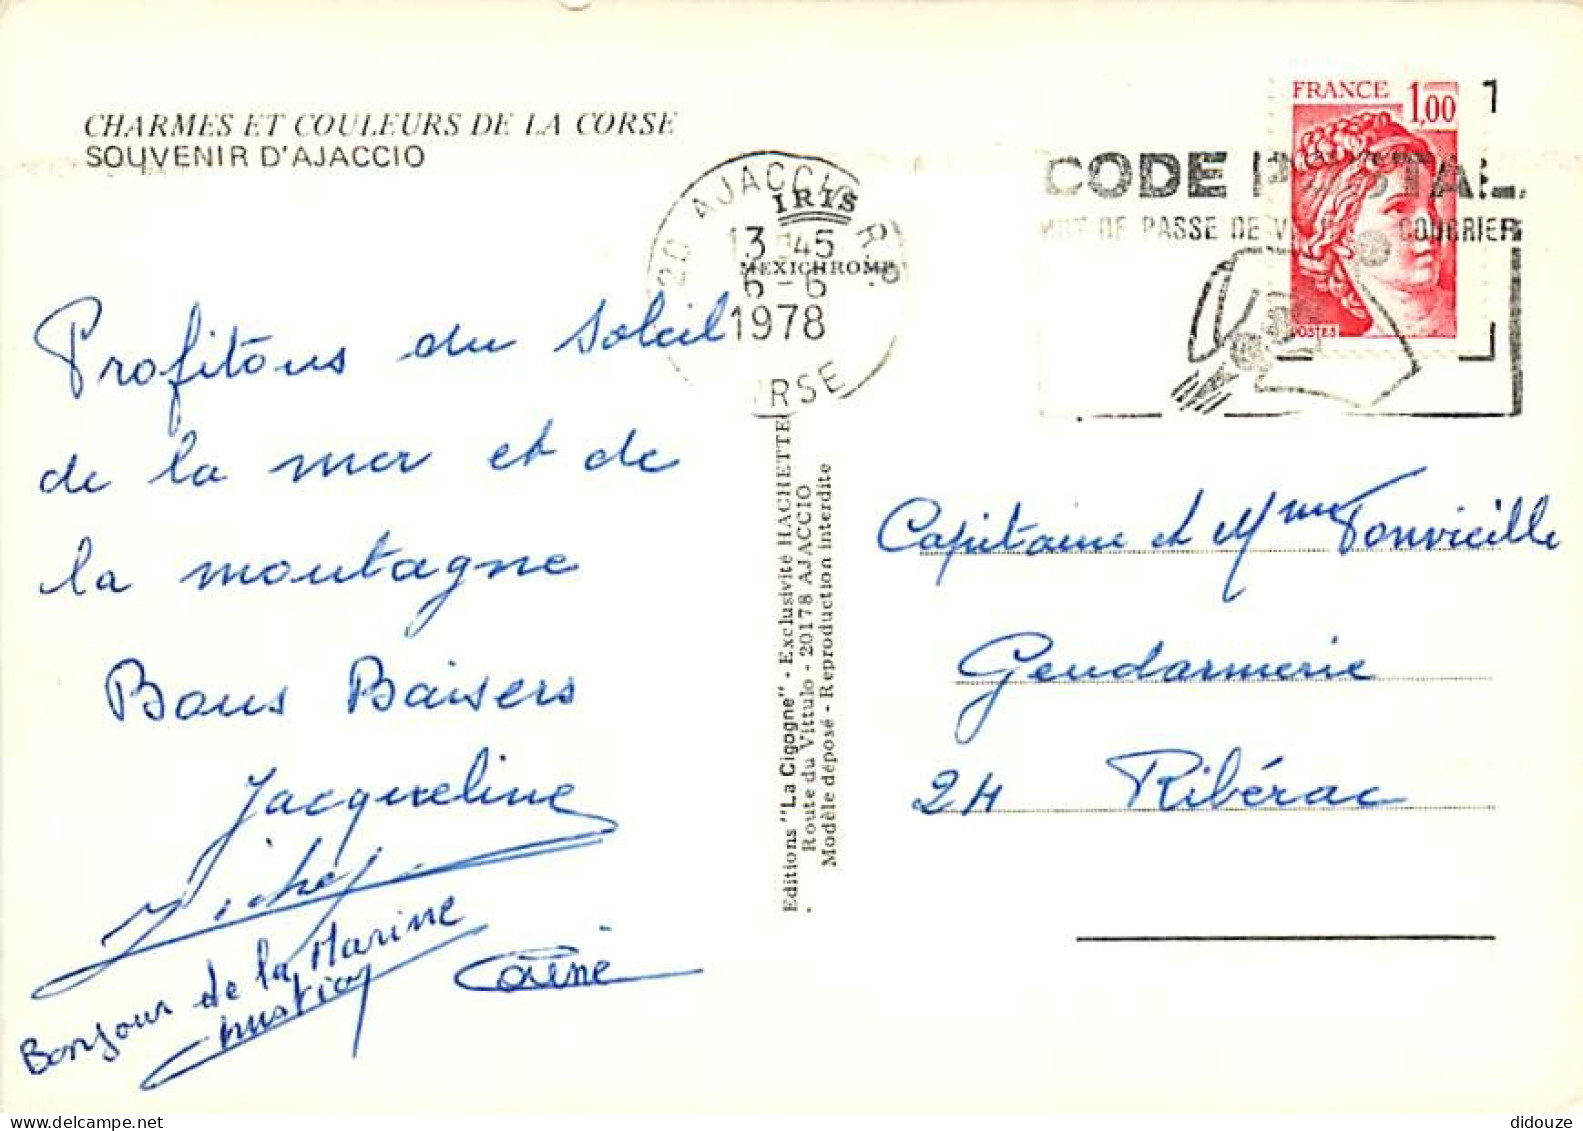 CHARMES ET COULEURS DE LA CORSE
SOUVENIR D'AJACCIO
20 AJACCIO R.P.
IRIS
13 45
MEXICHROME
6-6
1978
RSE
FRANCE 1,00
POSTES
1
CODE POSTAL
MOT DE PASSE DE VOTRE COURRIER
Profitons du soleil
de la mer et de
la montagne
Bons Baisers
Jacqueline
Michel
Bonjour de la Marine
Christian
Editions "La Cigogne" - Exclusivité HACHETTE
Route du Vittulo - 20178 AJACCIO
Modèle déposé - Reproduction interdite
Capitaine et Mme Tonvieille
Gendarmerie
24 Ribérac
didouze